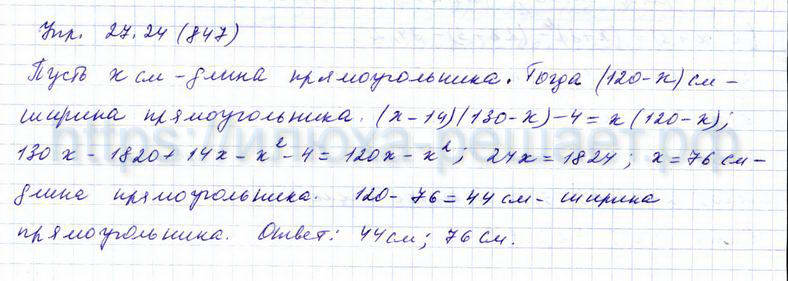 Упр. 27.24 (847)
Пусть x см - длина прямоугольника. Тогда (120-x) см -
ширина прямоугольника. (x-14)(130-x)-4=x(120-x);
130x-1820+14x-x²-4=120x-x²; 24x=1824; x=76 см-
длина прямоугольника. 120-76=44 см- ширина
прямоугольника. Ответ: 44 см; 76 см.